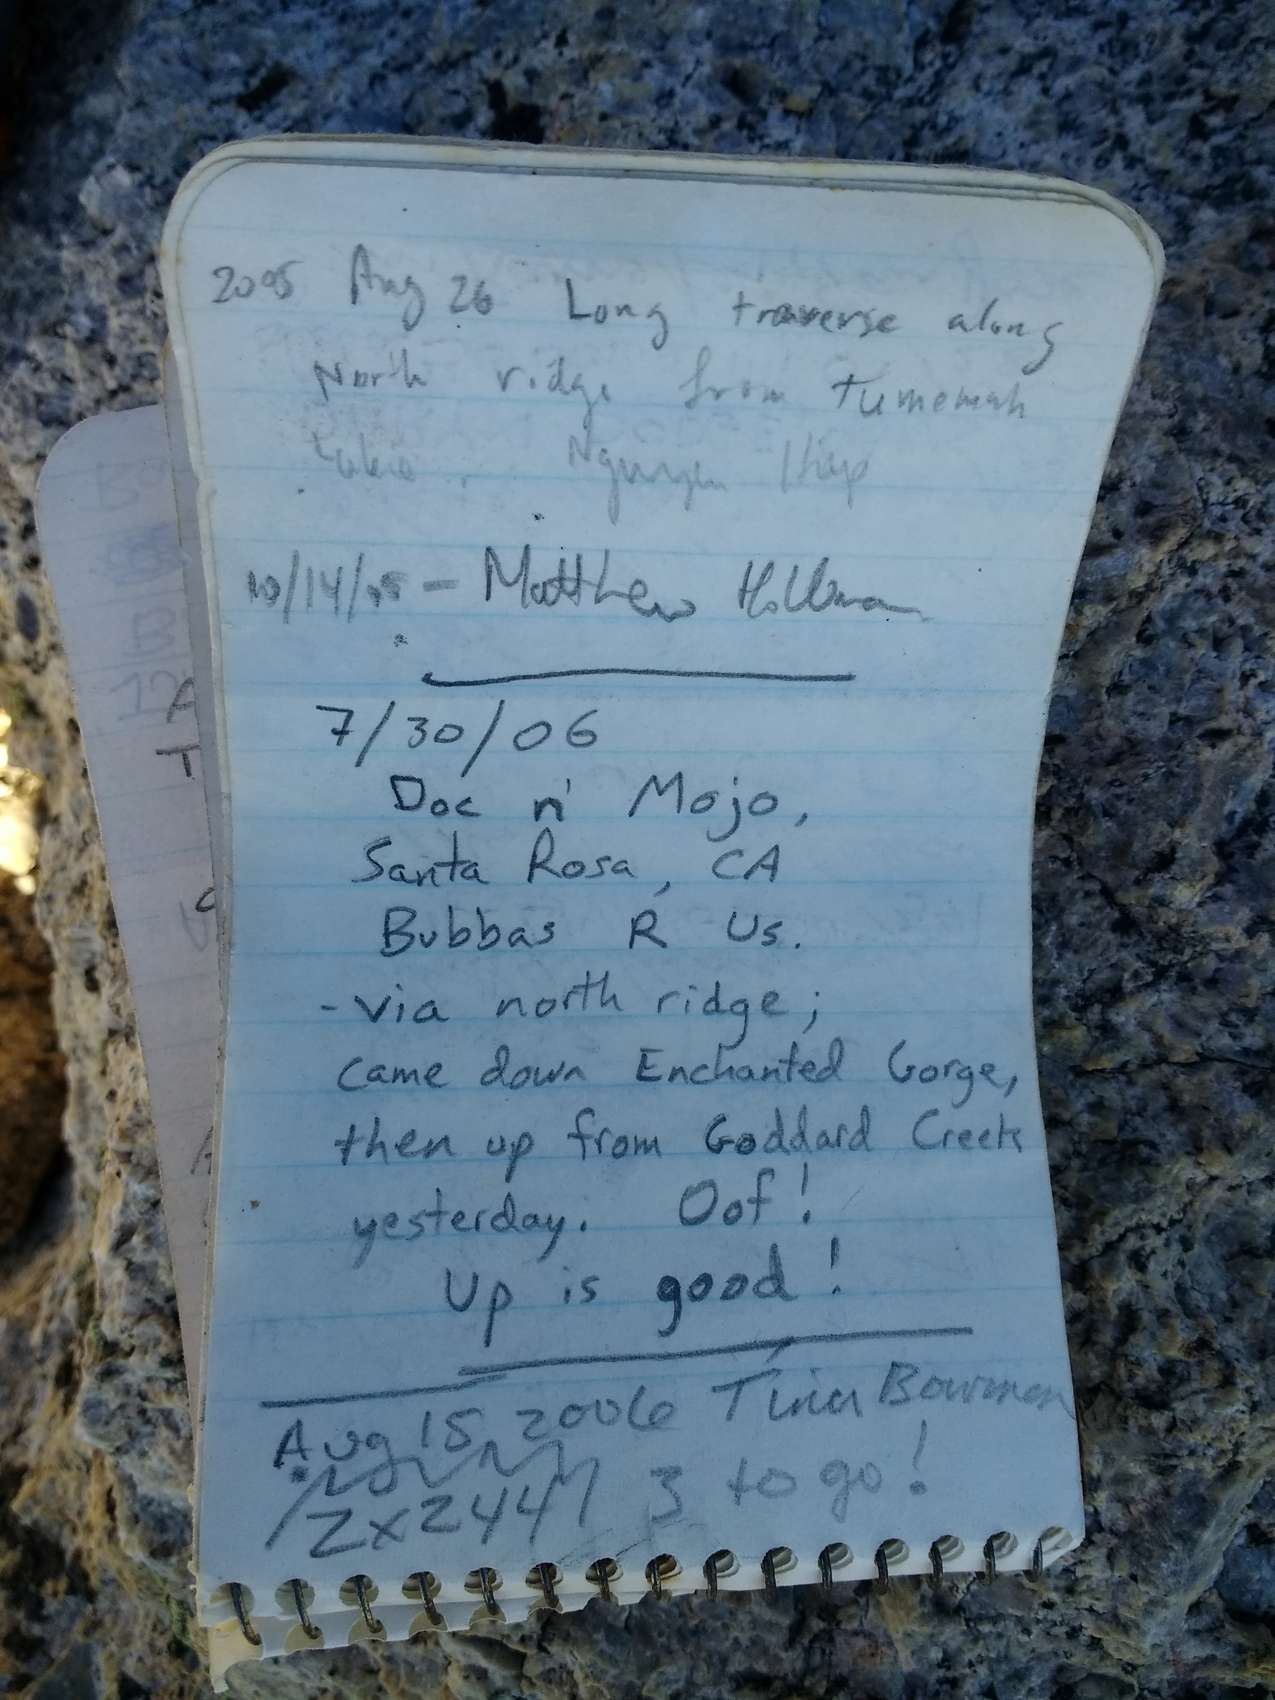 2005 Aug 26 Long traverse along
North ridge from Tumemah
Lake. Nguyen Hiep
10/14/05 - Matthew Hollman
7/30/06
Doc n' Mojo,
Santa Rosa, CA
Bubbas R Us.
- via north ridge;
came down Enchanted Gorge,
then up from Goddard Creek
yesterday. Oof!
Up is good!
Aug 15, 2006 Tina Bowman
2x244 3 to go!